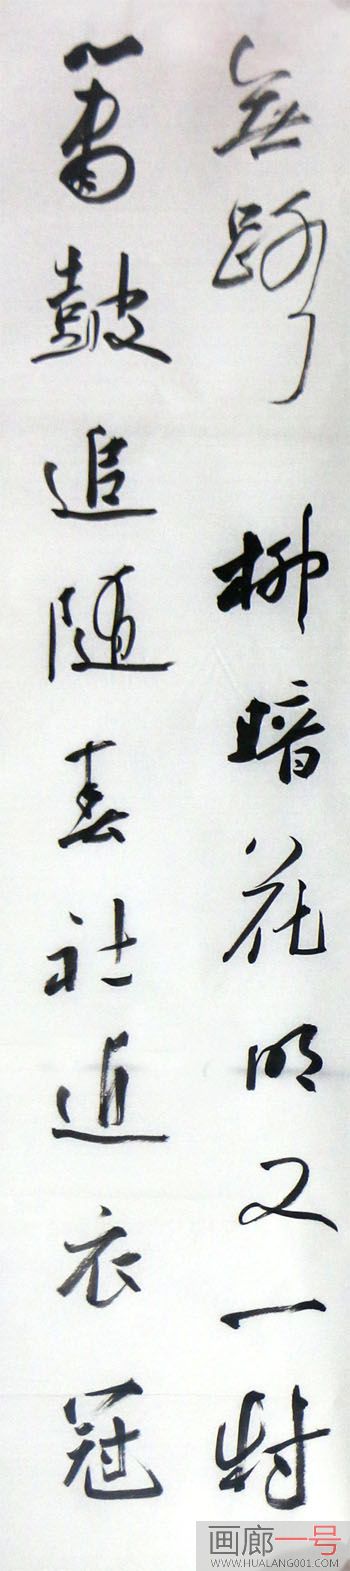 無路柳暗花明又一村
簫鼓追随春社近衣冠
画廊一号
WWW.HUALANG001.COM